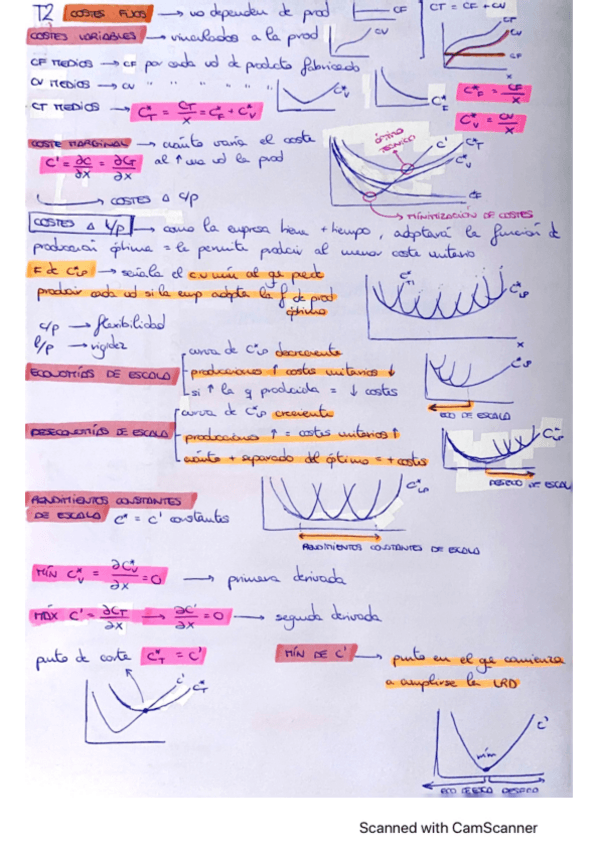 T2 COSTES FIJOS → no dependen de prod CF CT = CF + CV
CT
CV
CF
x
COSTES VARIABLES → vinculados a la prod CV
CF MEDIOS → CF por cada ud de producto fabricado
CV MEDIOS → CV " " " " C*v C*F C*F = CF/x
CT MEDIOS → C*T = CT/x = C*F + C*v C*v = CV/x
COSTE MARGINAL → cuánto varía el coste
C' = ∂C/∂x = ∂CT/∂x al ↑ una ud la prod
ÓPTIMO TÉCNICO C' C*T C*v C*F
→ MÍNIMIZACIÓN DE COSTES
→ COSTES Δ c/p
COSTES Δ L/p → como la empresa tiene + tiempo, adaptará la función de
producción óptima = le permita producir al menor coste unitario
F de C*LP → señala el c.u mín al q se puede
producir cada ud si la emp adapta la f de prod
óptima
C*T1 C*LP
x
c/p → flexibilidad
l/p → rigidez
ECONOMÍAS DE ESCALA
curva de C*LP decreciente
producciones ↑ costes unitarios ↓
si ↑ la q producida = ↓ costes
C*LP
ECO DE ESCALA
DESECONOMÍAS DE ESCALA
curva de C*LP creciente
producciones ↑ = costes unitarios ↑
cuánto + separado del óptimo = + costes
C*LP
DESECO DE ESCALA
RENDIMIENTOS CONSTANTES
DE ESCALA C* = C' constantes
C*LP
RENDIMIENTOS CONSTANTES DE ESCALA
MÍN C*v = ∂C*v/∂x = 0 → primera derivada
MÁX C' = ∂CT/∂x → ∂C'/∂x = 0 → segunda derivada
punto de corte C*T = C'
C' C*T
MÍN DE C' → punto en el q se comienza
a cumplirse la LRD
C'
mín
ECO DE ESCA DESECO
Scanned with CamScanner